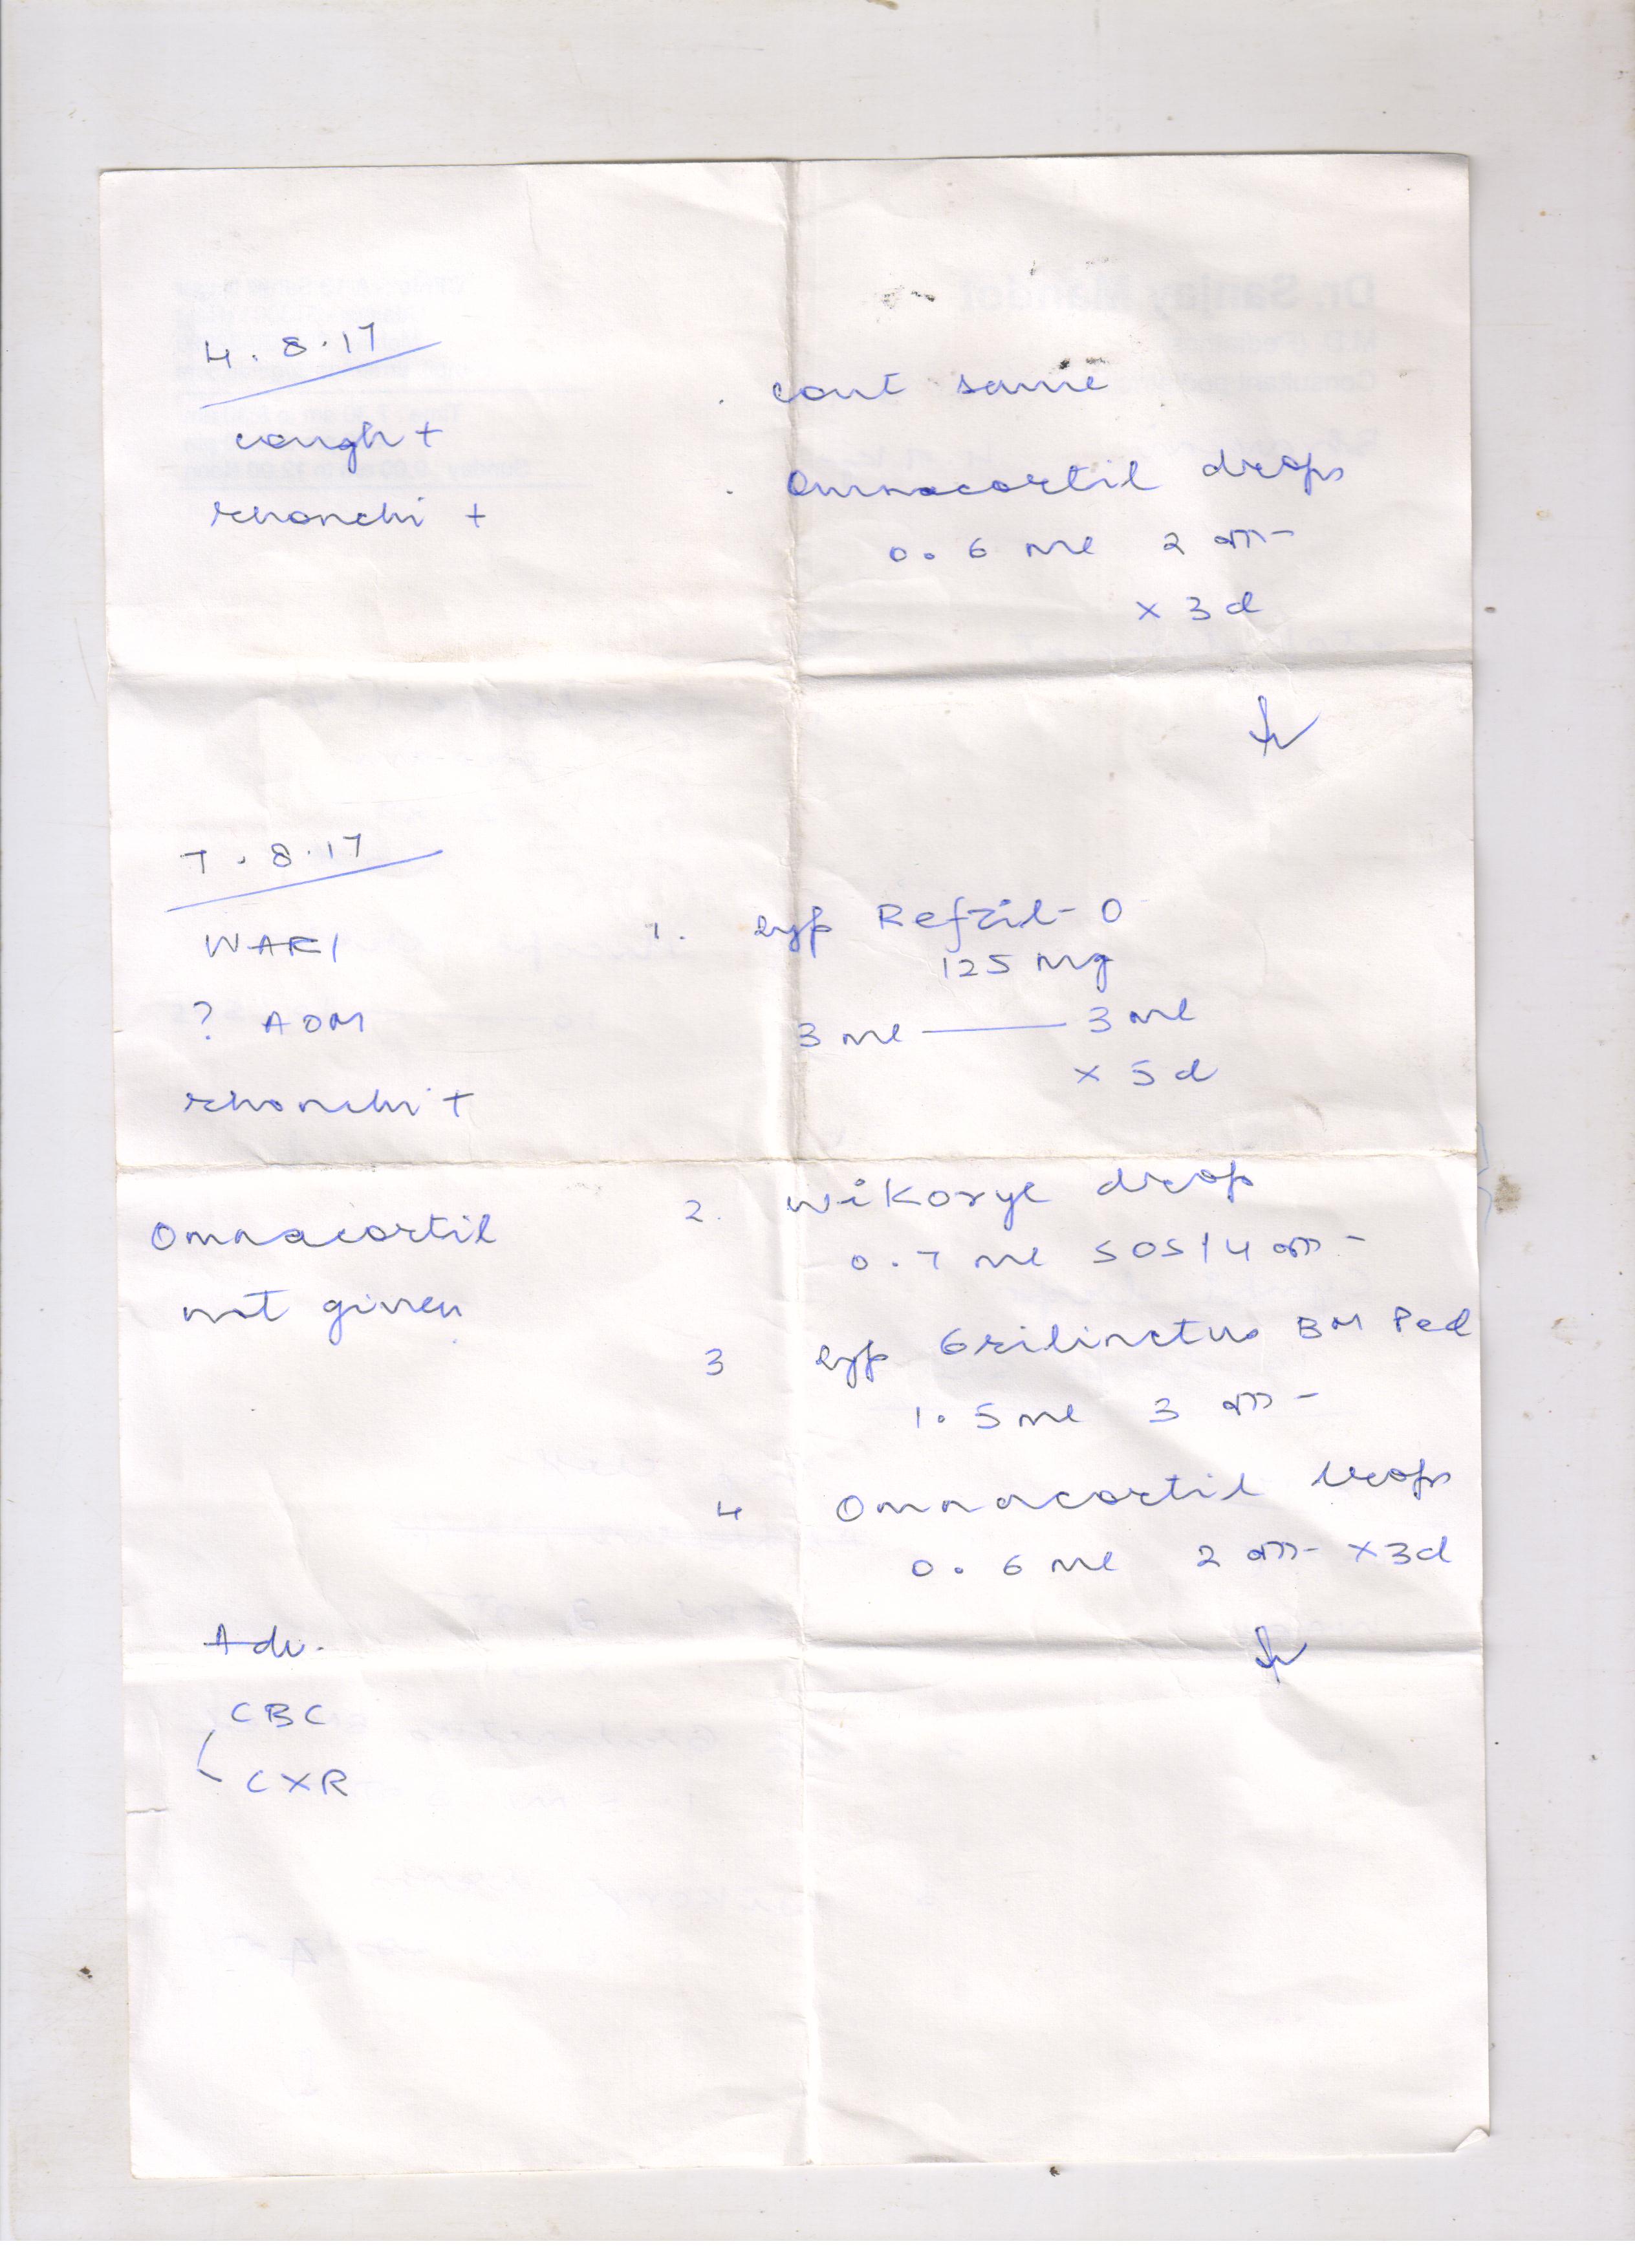 4.8.17
cough +
rhonchi +
. cont same
. Omnacortil drops
0.6 ml 2
x 3d
7.8.17
WARI
? AOM
rhonchi +
Omnacortil
not given
Adv.
CBC
CXR
1. syp Refzil-O
125 mg
3 ml — 3 ml
x 5d
2. Wikoryl drop
0.7 ml SOS/4
3 syp Grilinctus BM Ped
1.5 ml 3
4 Omnacortil drops
0.6 ml 2 x3d